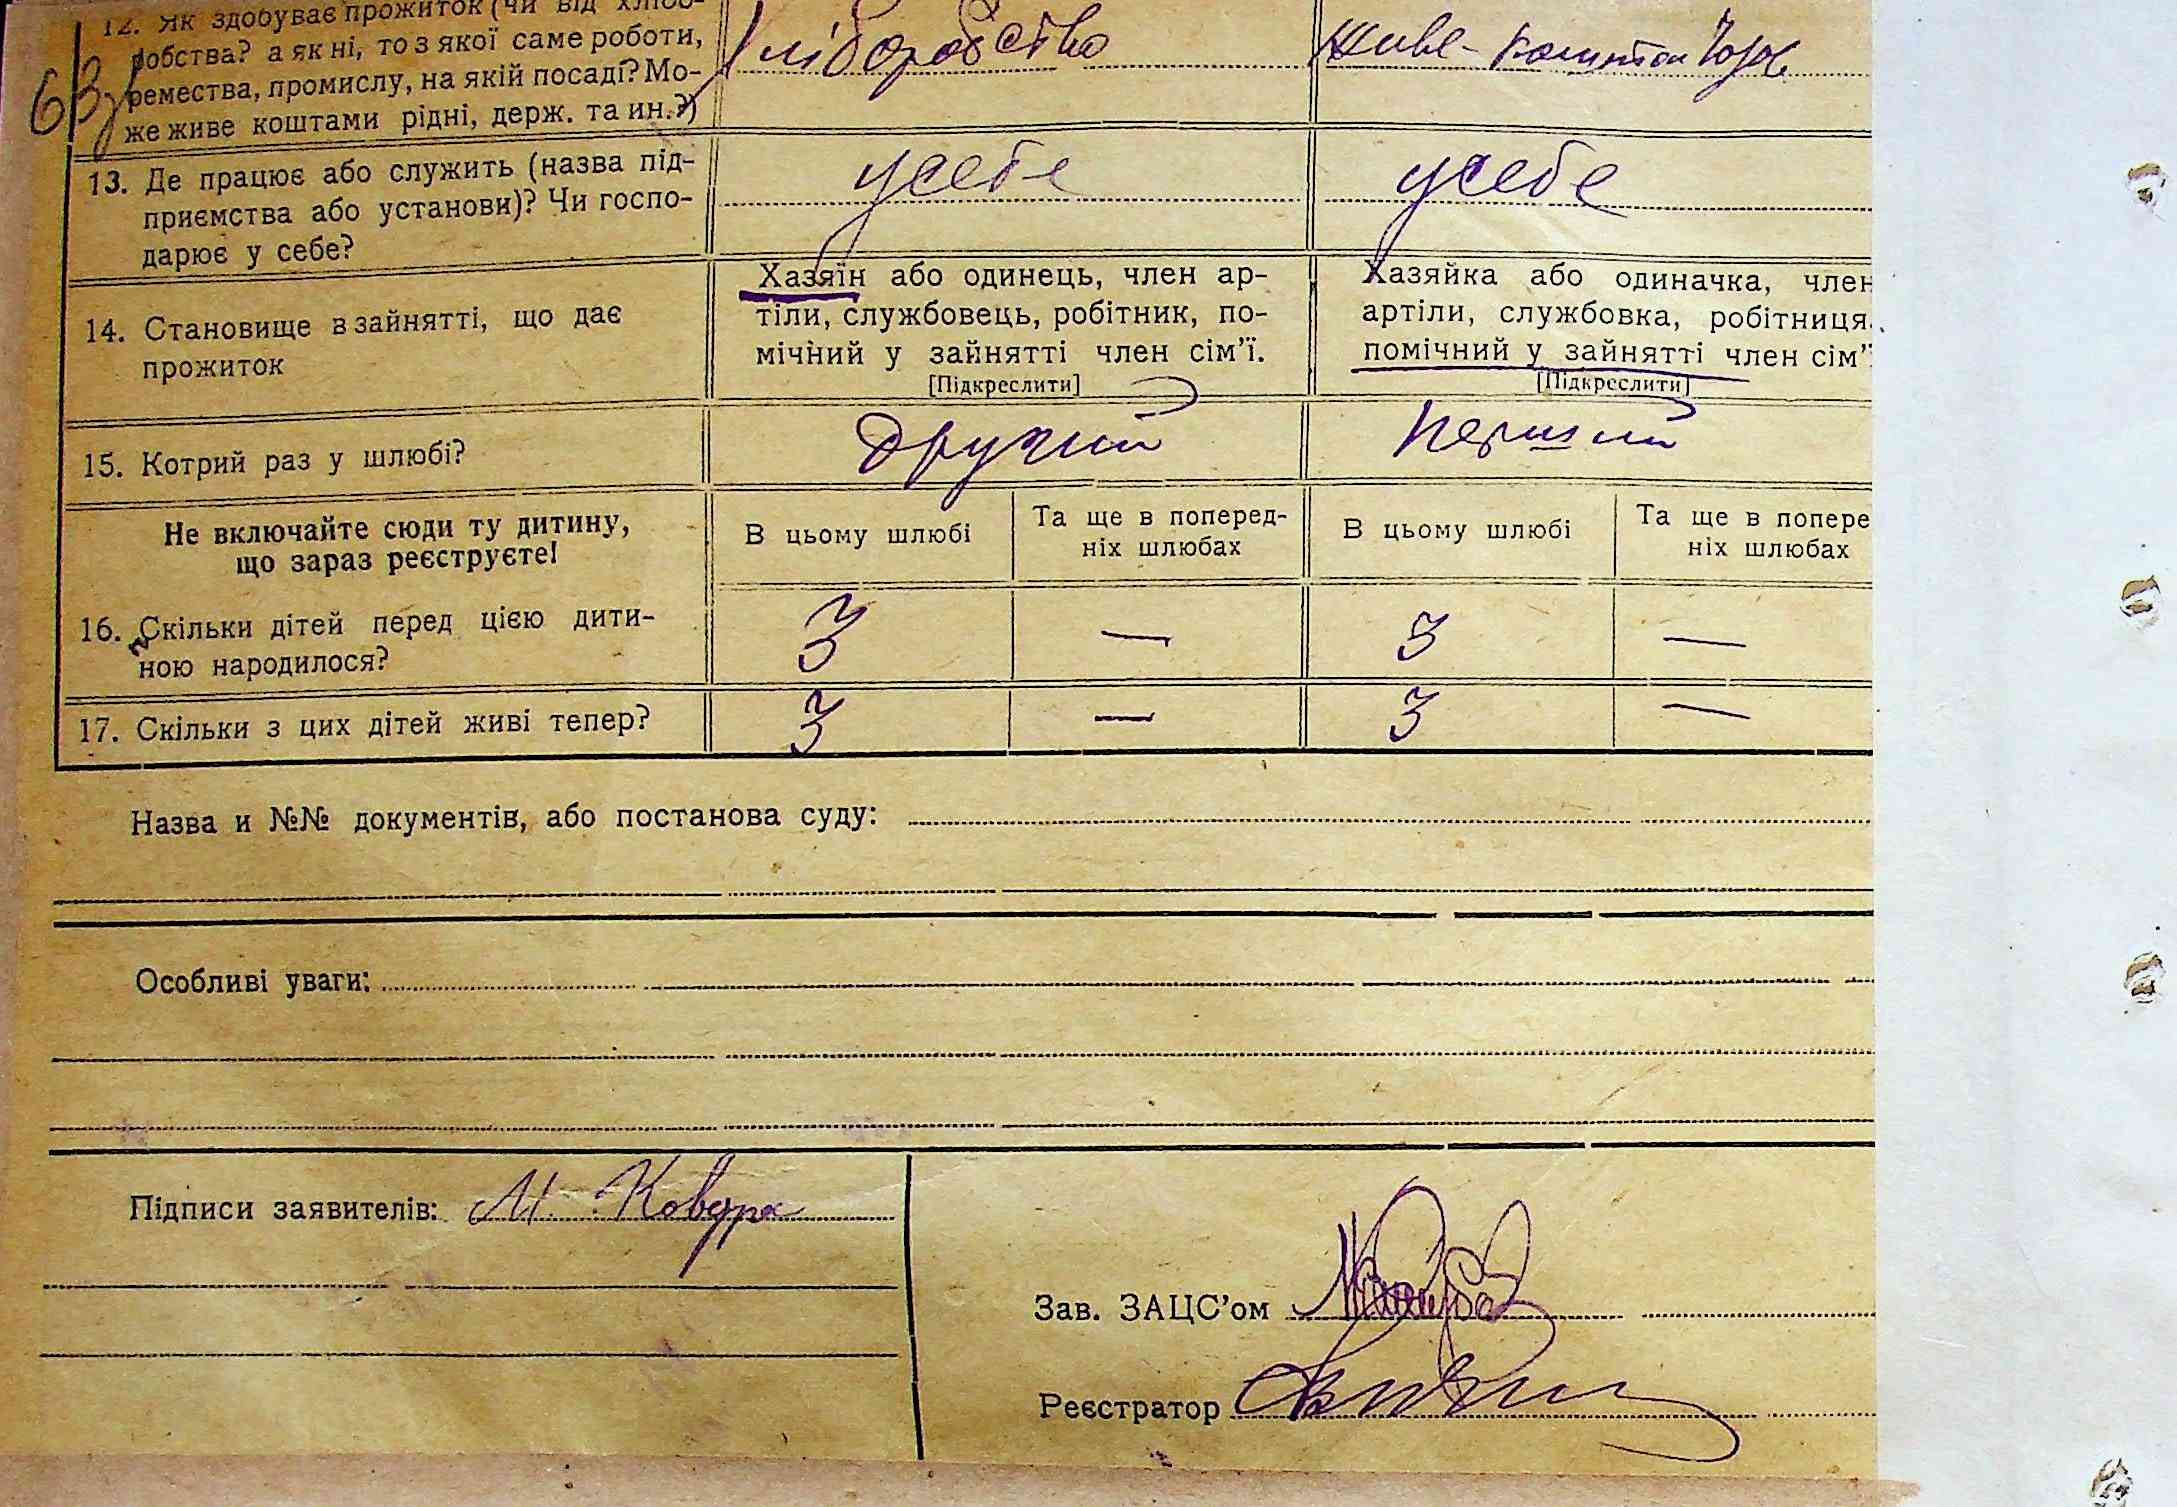 12. Як здобуває прожиток (чи від хлібо-
робства? а як ні, то з якої саме роботи,
ремества, промислу, на якій посаді? Мо-
же живе коштами рідні, держ. та ин.?)
Хліборобство
живе коштом
63
13. Де працює або служить (назва під-
приємства або установи)? Чи госпо-
дарює у себе?
у себе
у себе
14. Становище в зайнятті, що дає
прожиток
Хазяїн або одинець, член ар-
тіли, службовець, робітник, по-
мічний у зайнятті член сім'ї.
[Підкреслити]
Хазяйка або одиначка, член
артіли, службовка, робітниця,
помічний у зайнятті член сім'ї
[Підкреслити]
15. Котрий раз у шлюбі?
другий
перший
Не включайте сюди ту дитину,
що зараз реєструєте!
В цьому шлюбі
Та ще в поперед-
ніх шлюбах
В цьому шлюбі
Та ще в попере
ніх шлюбах
16. Скільки дітей перед цією дити-
ною народилося?
3 — 3 —
17. Скільки з цих дітей живі тепер?
3 — 3 —
Назва и №№ документів, або постанова суду:
Особливі уваги:
Підписи заявителів: М. Ковура
Зав. ЗАЦС'ом
Реєстратор